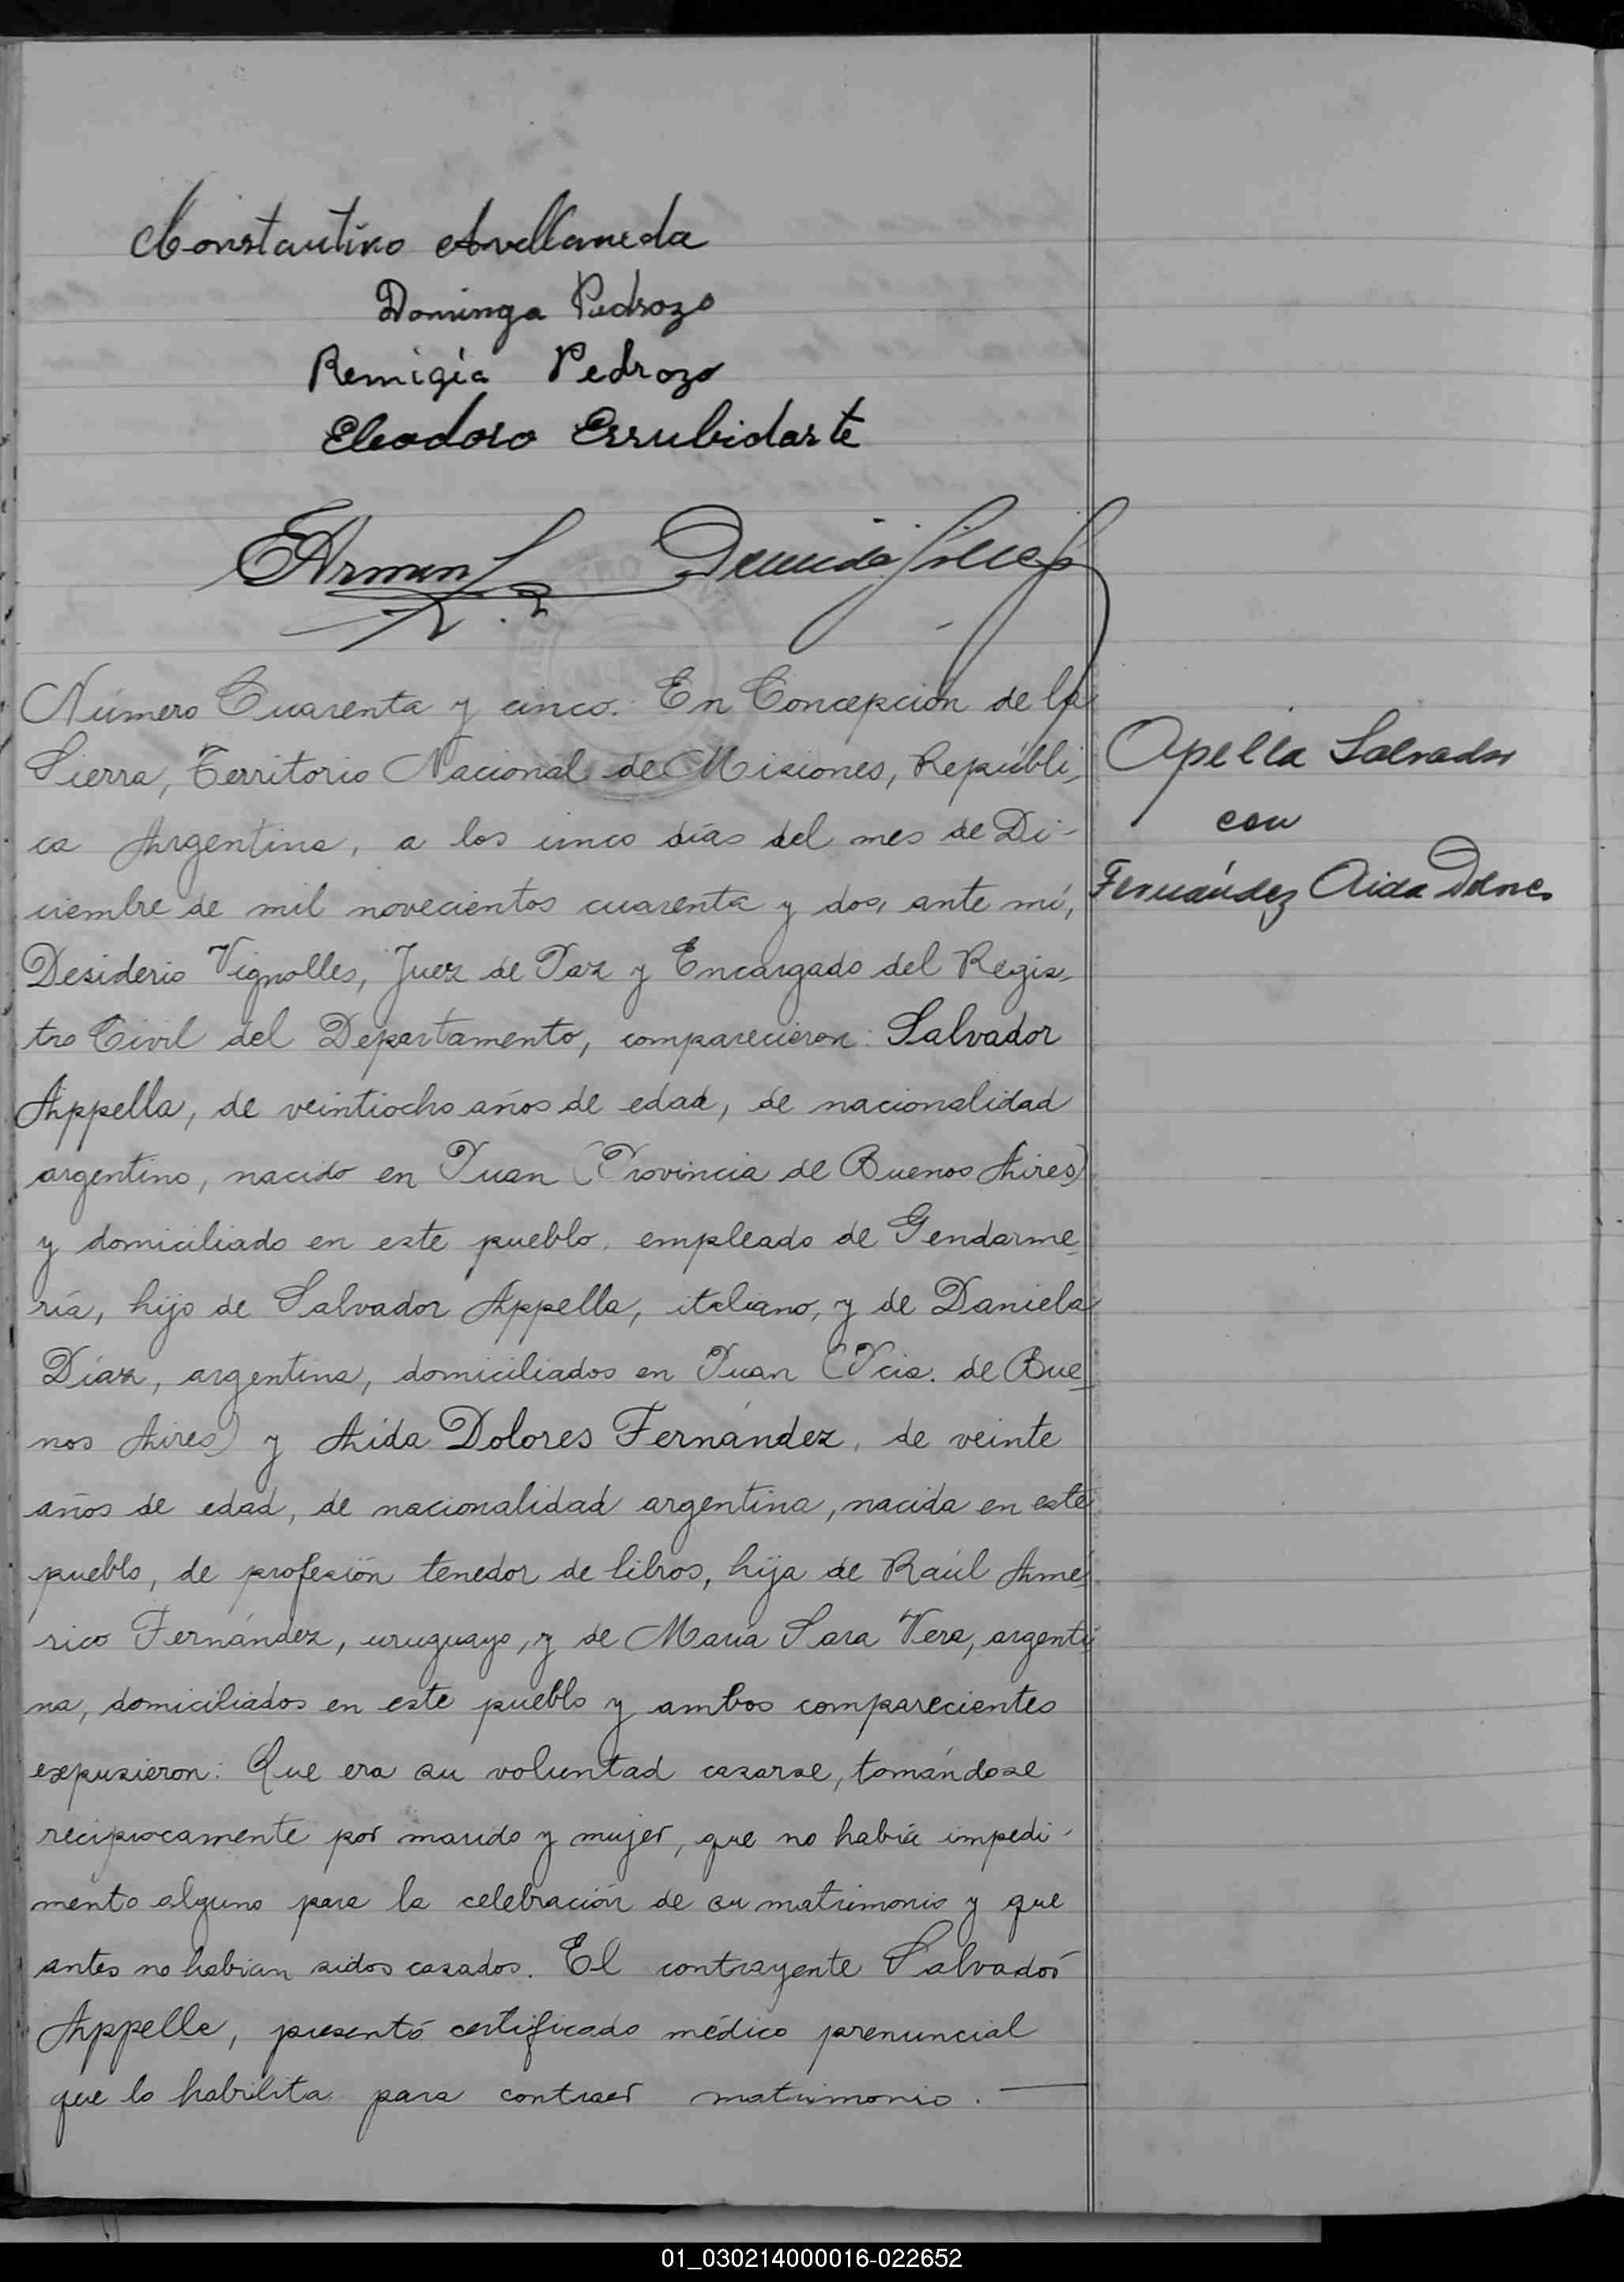 Constantino Avellaneda
Dominga Pedrozo
Remigia Pedrozo
Eleodoro Errubidarte
Número Cuarenta y cinco. En Concepción de la
Sierra, Territorio Nacional de Misiones, Repúbli-
ca Argentina, a los cinco días del mes de Di-
ciembre de mil novecientos cuarenta y dos, ante mí,
Desiderio Vignolles, Juez de Paz y Encargado del Regis-
tro Civil del Departamento, comparecieron: Salvador
Appella, de veintiocho años de edad, de nacionalidad
argentino, nacido en Puan (Provincia de Buenos Aires)
y domiciliado en este pueblo, empleado de Gendarme-
ría, hijo de Salvador Appella, italiano, y de Daniela
Díaz, argentina, domiciliados en Puan (Pcia. de Bue-
nos Aires) y Aída Dolores Fernández, de veinte
años de edad, de nacionalidad argentina, nacida en este
pueblo, de profesión tenedor de libros, hija de Raúl Amé-
rico Fernández, uruguayo, y de María Sara Vera, argenti-
na, domiciliados en este pueblo y ambos comparecientes
expusieron: Que era su voluntad casarse, tomándose
reciprocamente por marido y mujer, que no había impedi-
mento alguno para la celebración de su matrimonio y que
antes no habían sidos casados. El contrayente Salvador
Appella, presentó certificado médico prenuncial
que lo habilita para contraer matrimonio.
Apella Salvador
con
Fernández Aida
01_030214000016-022652